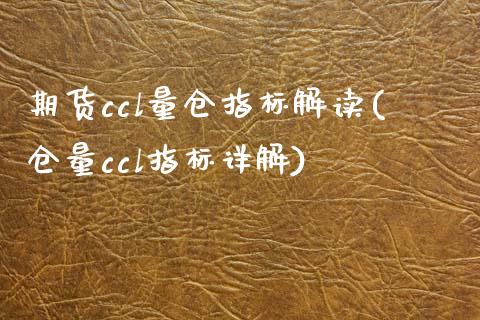 期货ccl量仓指标解读(
仓量ccl指标详解)